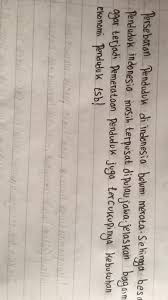 Persebaran Penduduk di indonesia belum merata. Sehingga besa
Penduduk indonesia masih terpusat dipulau jawa. jelaskan bagaim
agar terjadi Pemerataan Penduduk juga tercukupinya kebutuhan
ekonomi Penduduk (sb)